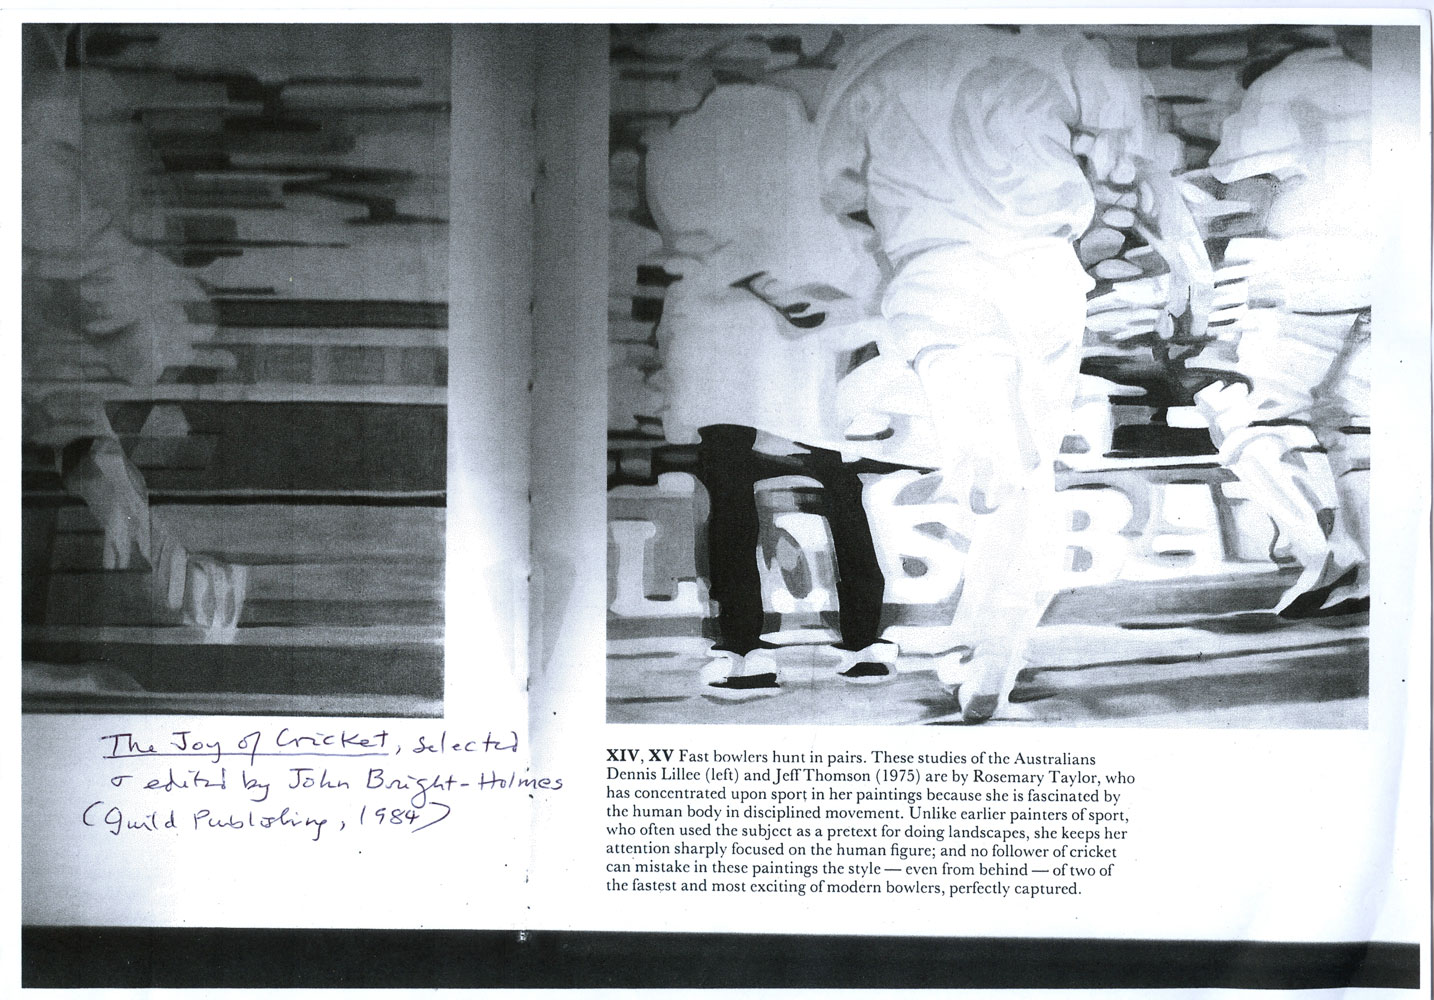 The Joy of Cricket, selected
& edited by John Bright-Holmes
(Guild Publishing, 1984)
XIV, XV Fast bowlers hunt in pairs. These studies of the Australians
Dennis Lillee (left) and Jeff Thomson (1975) are by Rosemary Taylor, who
has concentrated upon sport in her paintings because she is fascinated by
the human body in disciplined movement. Unlike earlier painters of sport,
who often used the subject as a pretext for doing landscapes, she keeps her
attention sharply focused on the human figure; and no follower of cricket
can mistake in these paintings the style — even from behind — of two of
the fastest and most exciting of modern bowlers, perfectly captured.